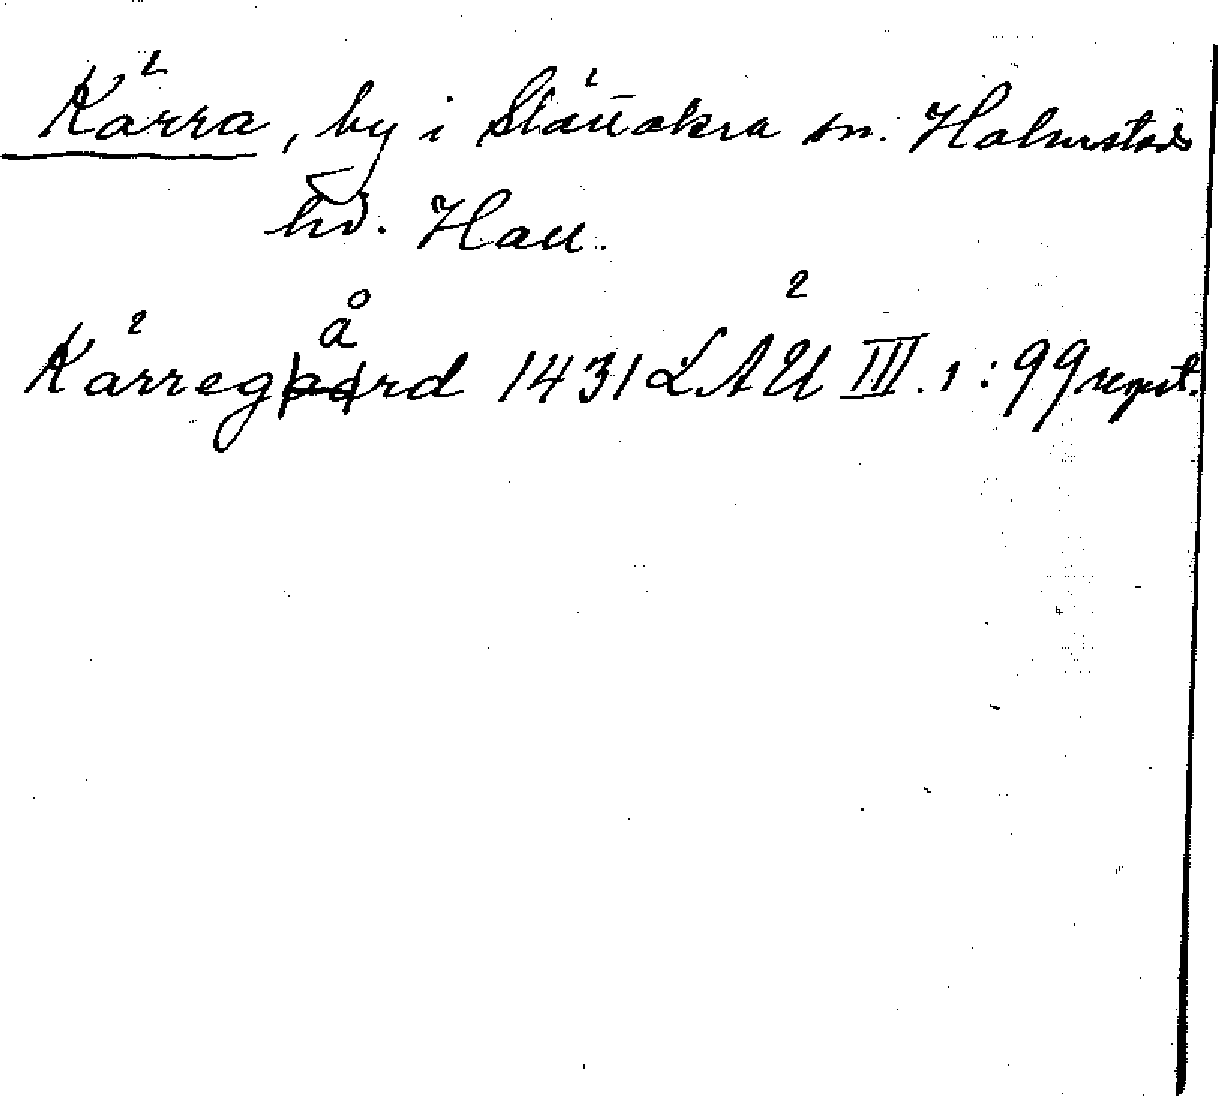 Kärra, by i Slättåkra sn. Halmstads
hd. Hall.
Kärregård 1431 LÄU III. 1:99 regest.